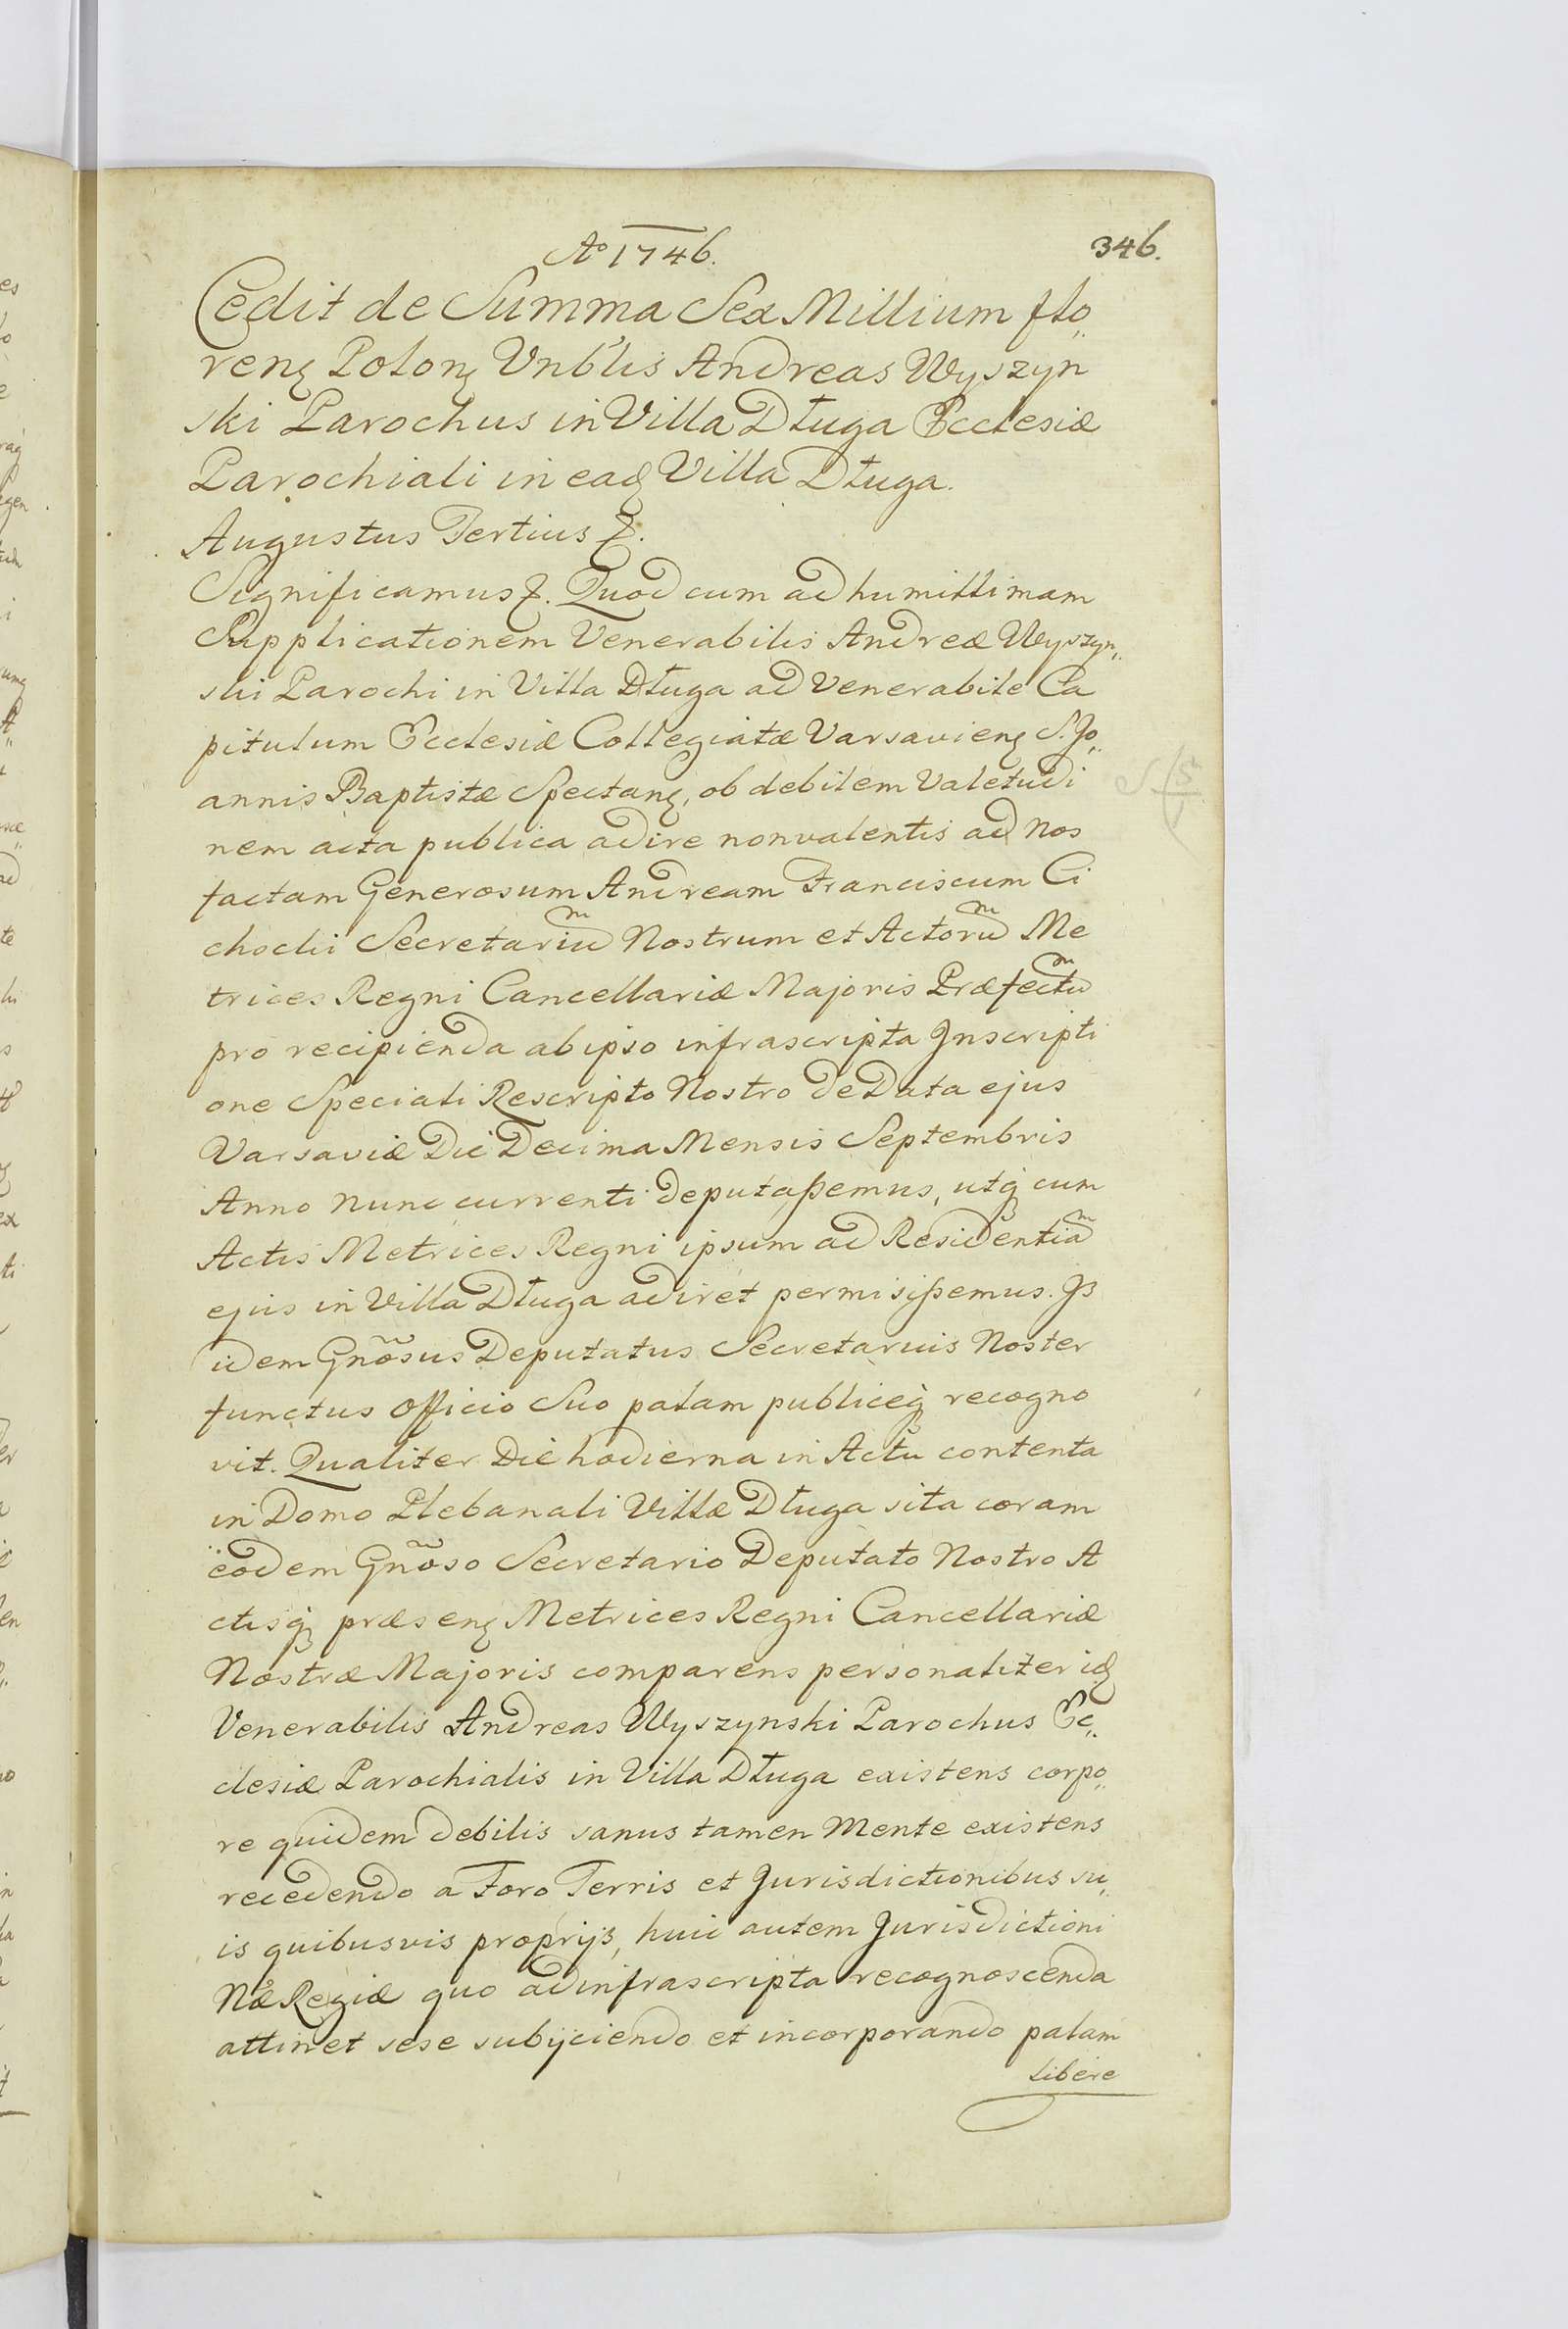 Aº 1746.
346.
Cedit de Summa Sex Millium flo„
renꝫ Polonꝫ Vnblis Andreas Wyszyn
ski Parochus in Villa Długa Ecclesiæ
Parochiali in eadꝫ Villa Długa.
Augustus Tertius &.
Significamus &. Quod cum ad humillimam
Supplicationem Venerabilis Andreæ Wyszyn„
ski Parochi in Villa Długa ad Venerabile Ca
pitulum Ecclesiæ Collegiatæ Varsavienꝫ S. Jo„
annis Baptistæ Spectanꝫ, ob debilem Valetudi
nem acta publica adire non valentis ad Nos
factam Generosum Andream Franciscum Ci
chocki Secretariũ Nostrum et Actorũ Me
trices Regni Cancellariæ Majoris Præfectũ
pro recipienda ab ipso infrascripta Inscripti
one Speciali Rescripto Nostro de Data ejus
Varsaviæ Die Decima Mensis Septembris
Anno nunc currenti deputaßemus, utqꝫ cum
Actis Metrices Regni ipsum ad Residentiã
ejus in Villa Długa adiret permisißemus. Is
idem Gnõsus Deputatus Secretarius Noster
functus Officio Suo palam publiceqꝫ recogno
vit. Qualiter Die hodierna in Actu contenta
in Domo Plebanali Villæ Długa sita coram
eodem Gnõso Secretario Deputato Nostro A
ctisqꝫ præsenꝫ Metrices Regni Cancellariæ
Nostræ Majoris comparens personaliter idꝫ
Venerabilis Andreas Wyszynski Parochus Ec„
clesiæ Parochialis in Villa Długa existens corpo„
re quidem debilis sanus tamen Mente existens
recedendo a Foro Terris et Jurisdictionibus su„
is quibusvis proprijs, huic autem Jurisdictioni
Næ Regiæ quo ad infrascripta recognoscenda
attinet sese subijciendo et incorporando palam
libere